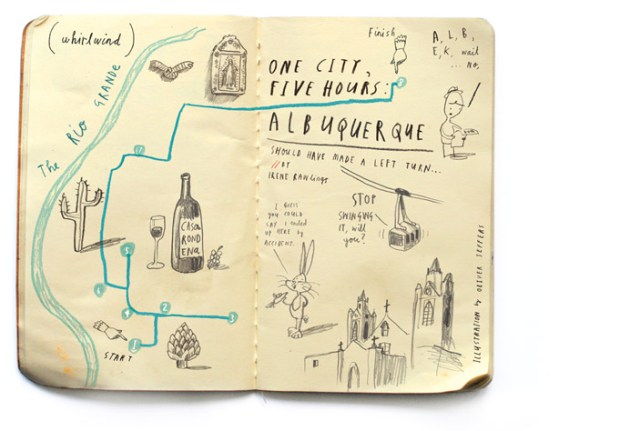 (whirlwind)
The Rio GRANDE
CASA
RONDENA
START
1
2
3
4
5
6
Finish
A, L, B,
E, K, wait
... no.
ONE CITY,
FIVE HOURS:
ALBUQUERQUE
SHOULD HAVE MADE A LEFT TURN...
BY
IRENE RAWLINGS
STOP
SWINGING
IT, will
you?
I GUESS
YOU COULD
SAY I ended
up HERE by
ACCIDENT.
ILLUSTRATION by OLIVER JEFFERS